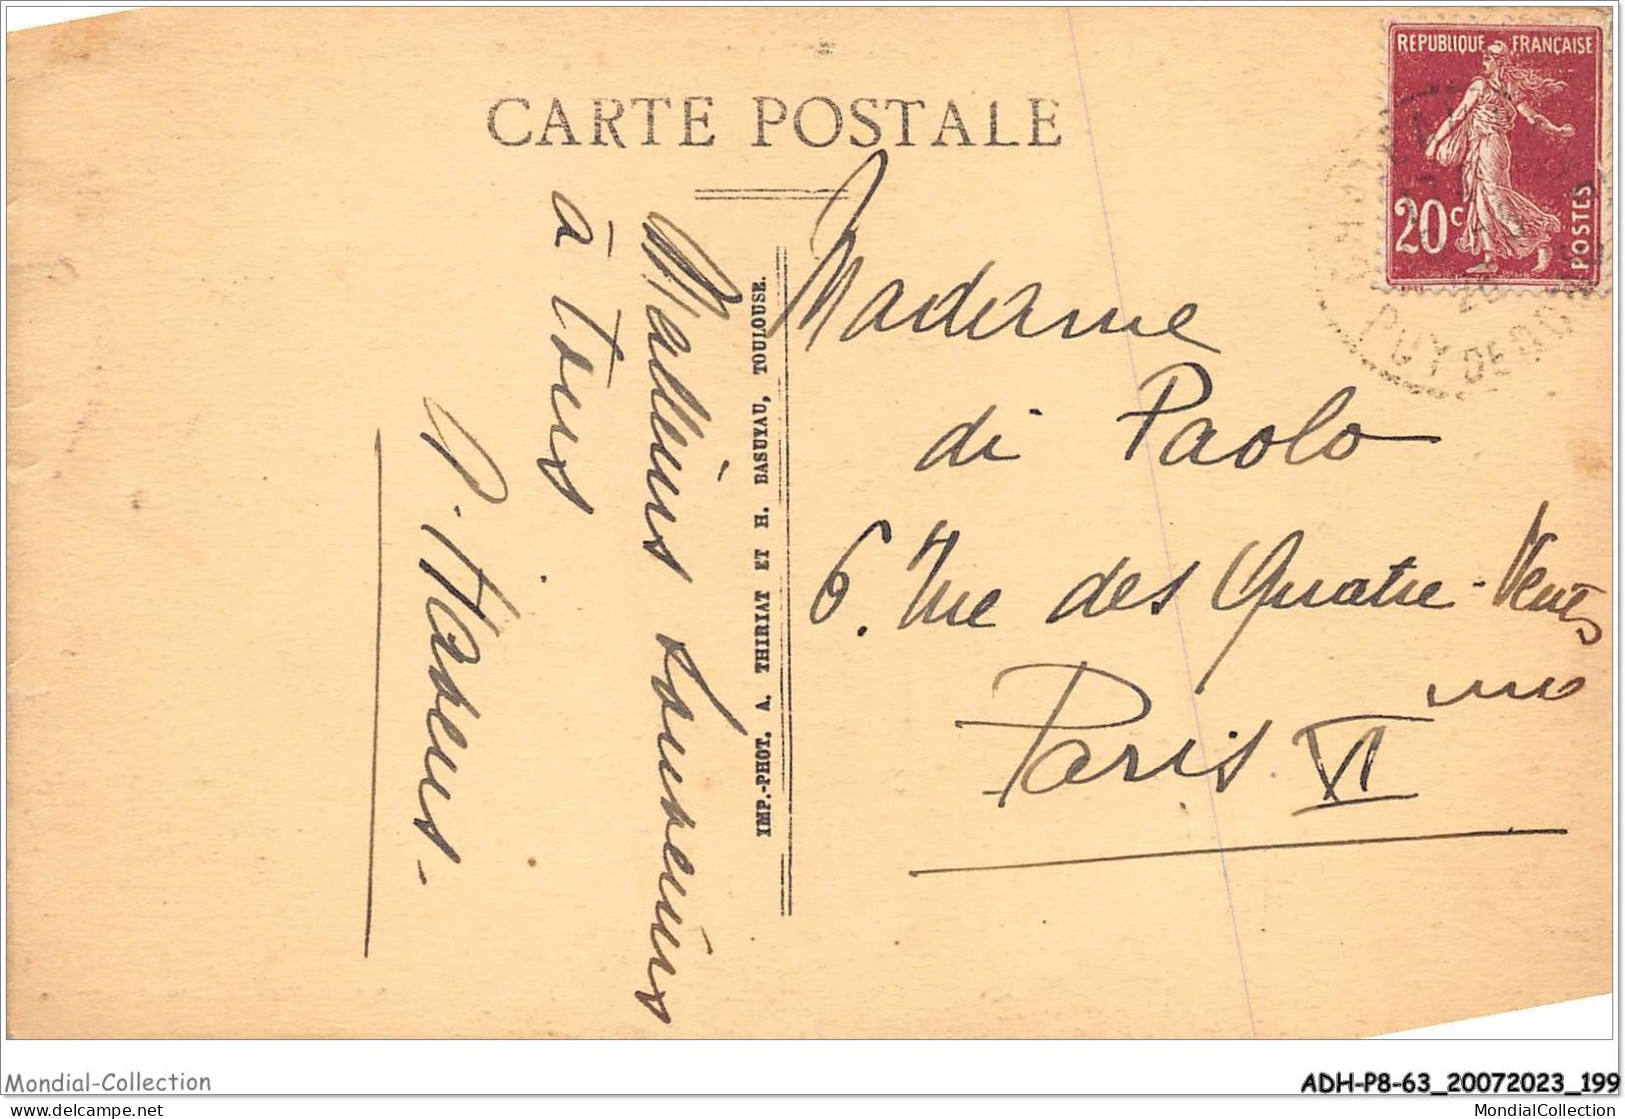 CARTE POSTALE
REPUBLIQUE FRANÇAISE
20c
POSTES
PUY DE DOME
Meilleurs souvenirs
à tous
IMP.-PHOT. A. THIRIAT ET H. BASUYAU, TOULOUSE.
Madame
di Paolo
6. rue des Quatre-Vents
Paris VI me
Mondial-Collection
ADH-P8-63_20072023_199
delcampe.net
MondialCollection